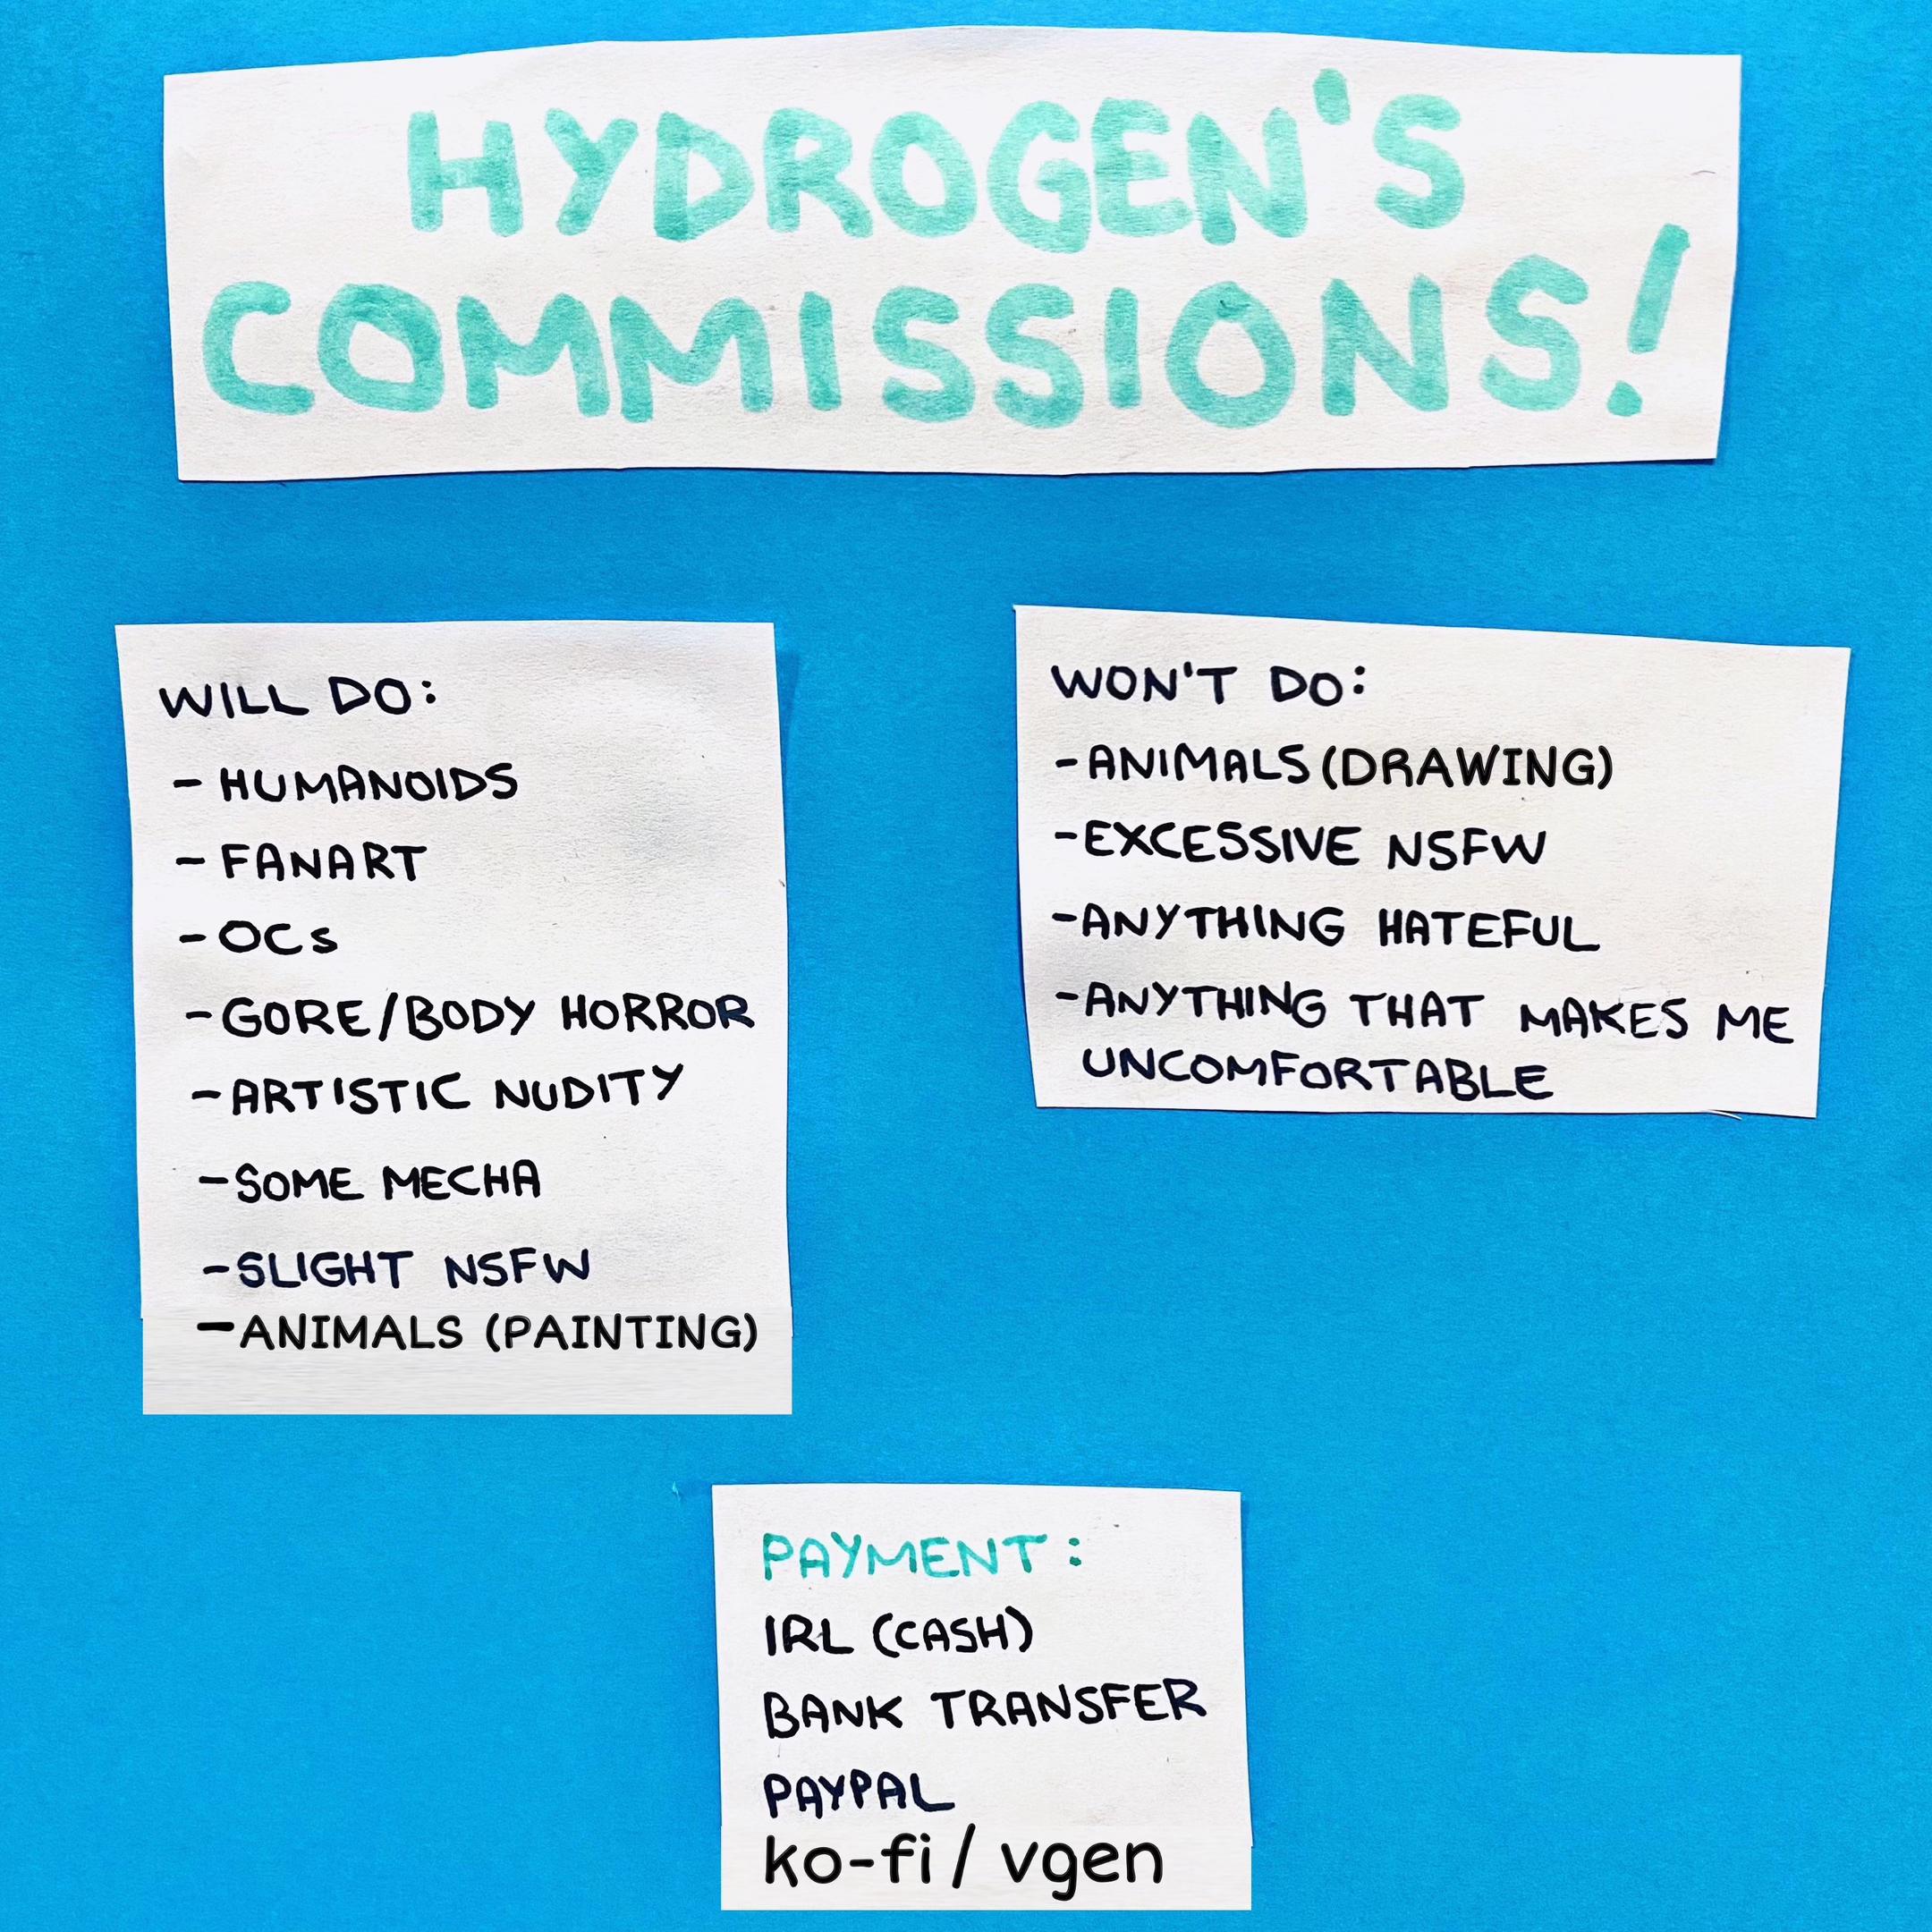 HYDROGEN'S
COMMISSIONS!
WILL DO:
- HUMANOIDS
- FANART
- OCs
- GORE/BODY HORROR
- ARTISTIC NUDITY
- SOME MECHA
- SLIGHT NSFW
- ANIMALS (PAINTING)
WON'T DO:
- ANIMALS (DRAWING)
- EXCESSIVE NSFW
- ANYTHING HATEFUL
- ANYTHING THAT MAKES ME
UNCOMFORTABLE
PAYMENT:
IRL (CASH)
BANK TRANSFER
PAYPAL
ko-fi / vgen